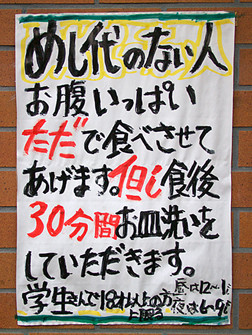 めし代のない人
お腹いっぱい
ただで食べさせて
あげます。但し食後
30分間お皿洗いを
していただきます。
学生さんで18才以上の方
に限る
昼は12〜1
夜は6〜9